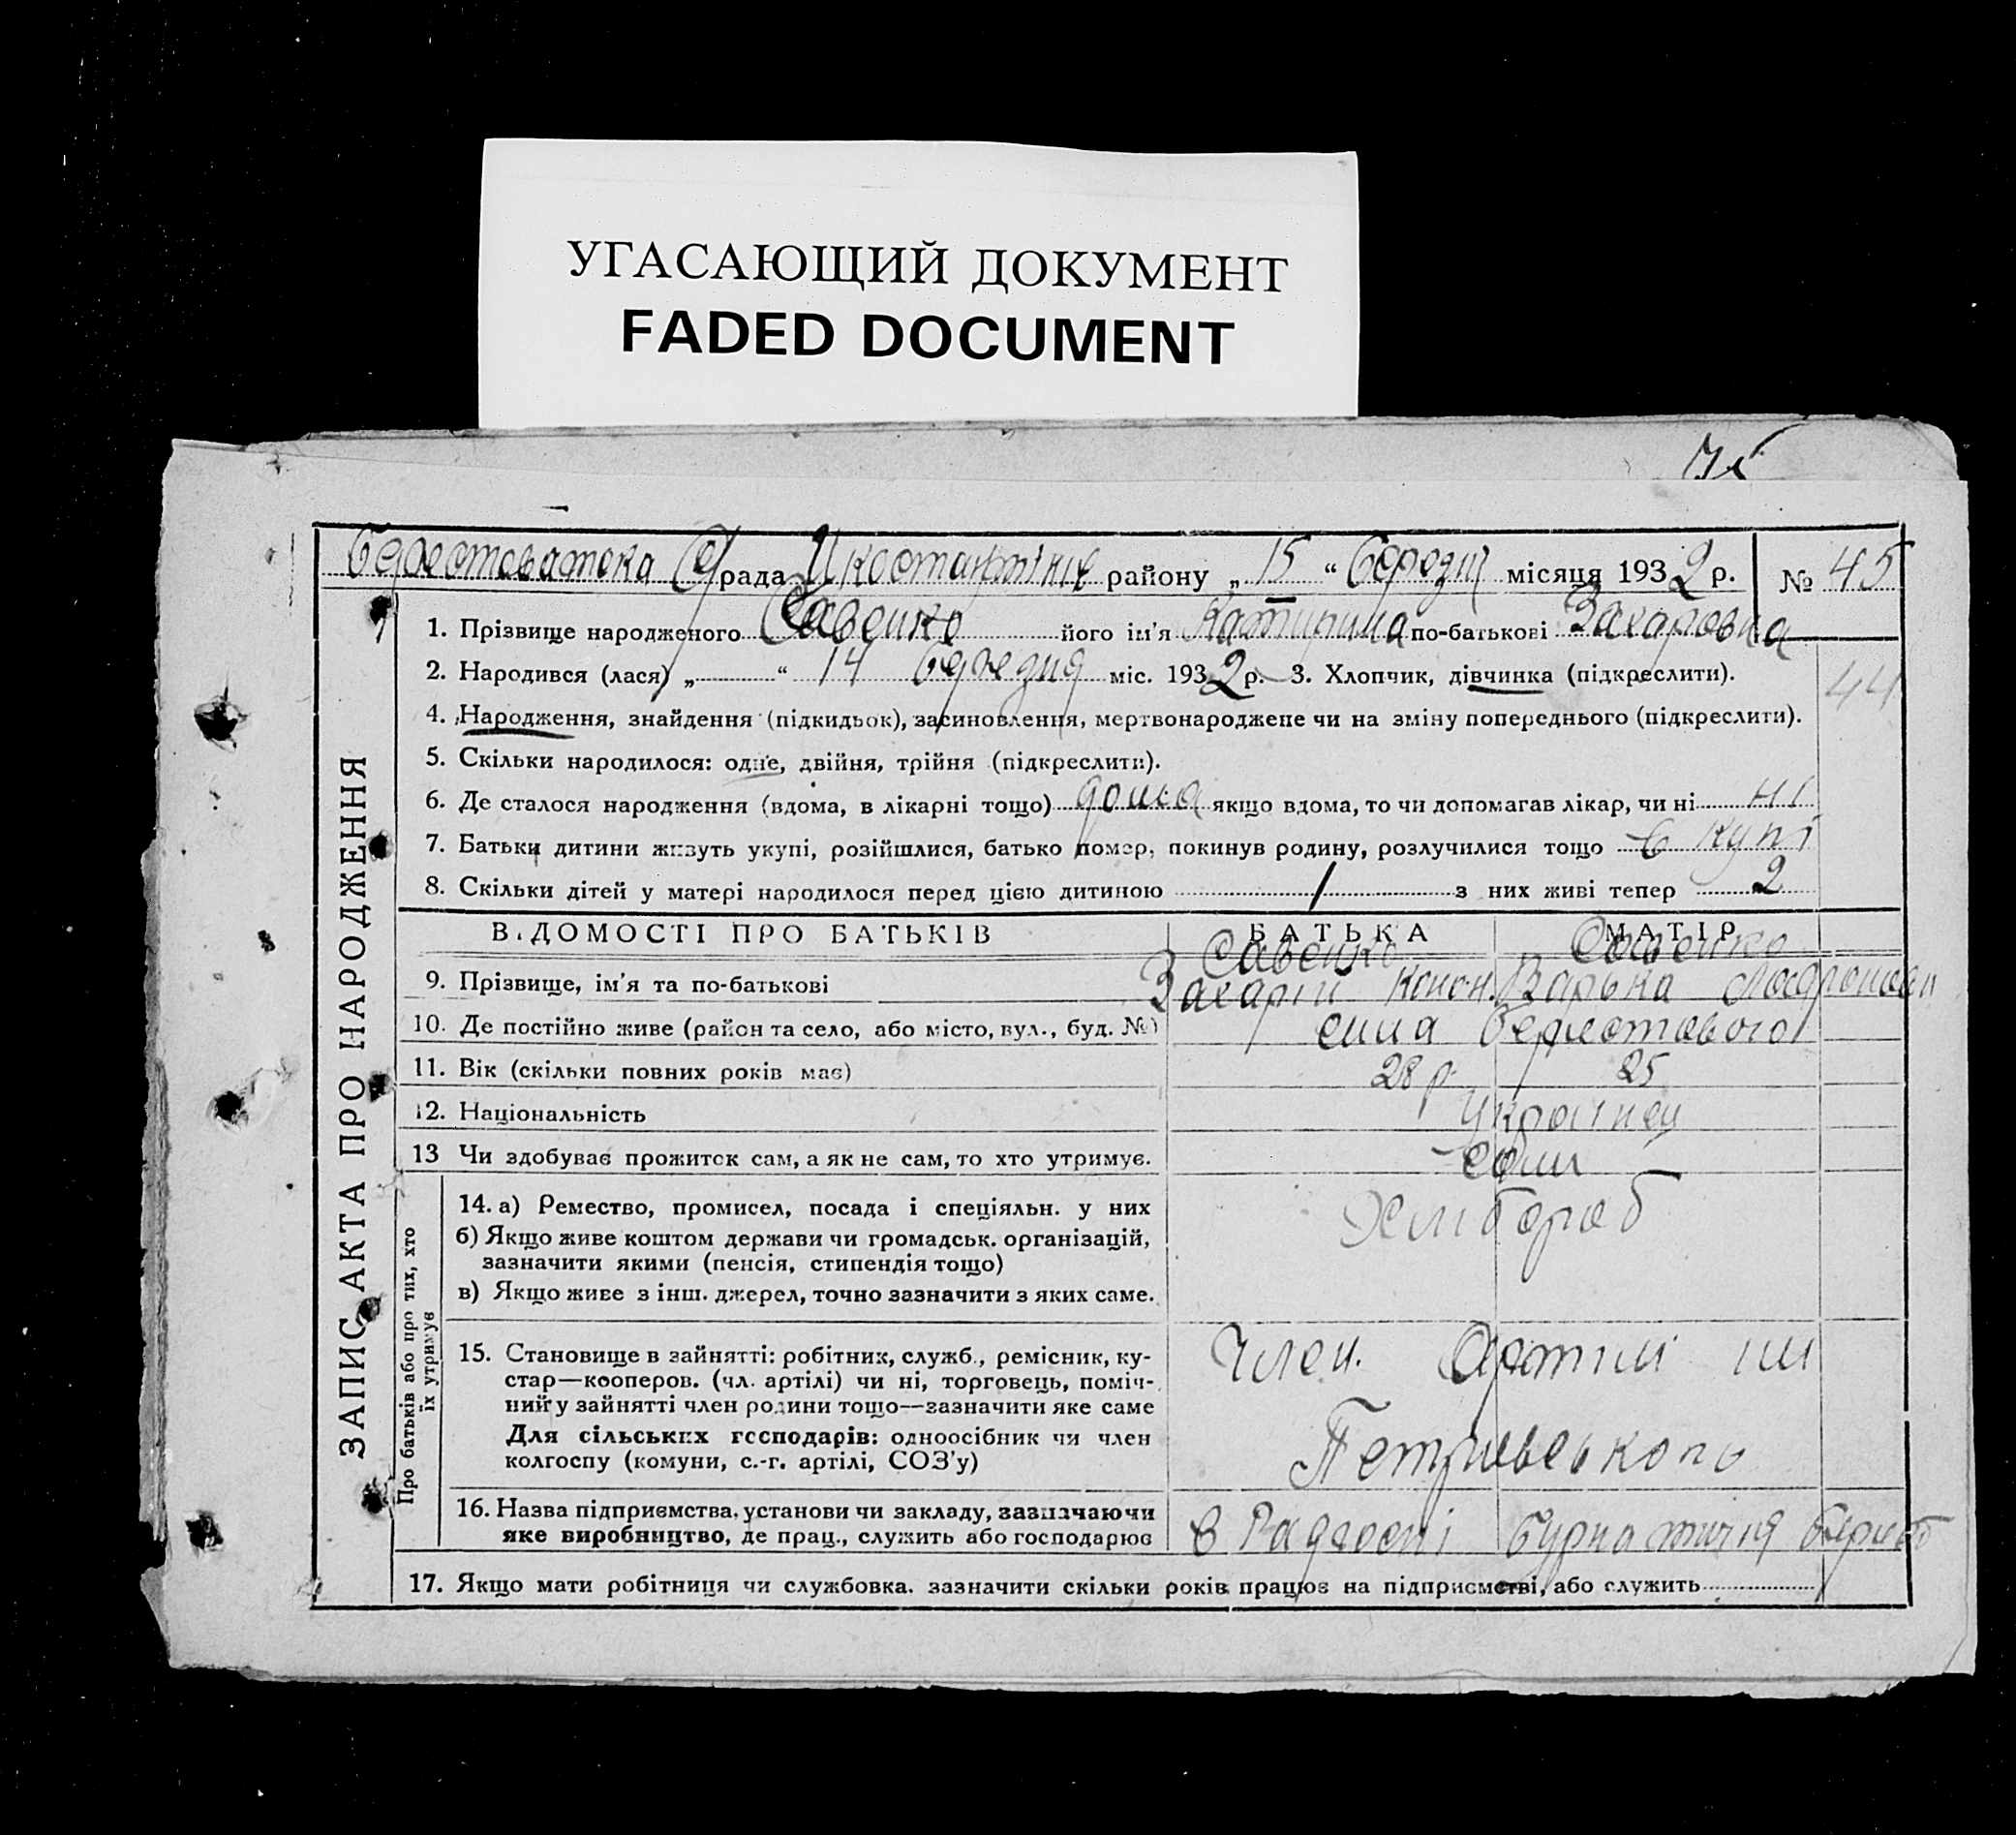 УГАСАЮЩИЙ ДОКУМЕНТ
FADED DOCUMENT
ЗАПИС АКТА ПРО НАРОДЖЕННЯ
рада району „ 15 “ місяця 1932 р. № 45
1. Прізвище народженого Савенко його ім'я Катирина по-батькові Захаровна
44
2. Народився (лася) „ “ 14 Березня міс. 1932 р. 3. Хлопчик, дівчинка (підкреслити).
4. Народження, знайдення (підкидьок), засиновлення, мертвонароджене чи на зміну попереднього (підкреслити).
5. Скільки народилося: одне, двійня, трійня (підкреслити).
6. Де сталося народження (вдома, в лікарні тощо) дома якщо вдома, то чи допомагав лікар, чи ні ні
7. Батьки дитини живуть укупі, розійшлися, батько помер, покинув родину, розлучилися тощо в купі
8. Скільки дітей у матері народилося перед цією дитиною 1 з них живі тепер 2
ВІДОМОСТІ ПРО БАТЬКІВ БАТЬКА МАТІР
Савенко Савенко
9. Прізвище, ім'я та по-батькові Захарій Конон. Варька
10. Де постійно живе (район та село, або місто, вул., буд. №) села Берестового
11. Вік (скільки повних років має) 28 р. 25
12. Національність Українец
13 Чи здобуває прожиток сам, а як не сам, то хто утримує. сами
Про батьків або про тих, хто їх утримує
14. а) Ремество, промисел, посада і спеціяльн. у них Хлібороб
б) Якщо живе коштом держави чи громадськ. організацій,
зазначити якими (пенсія, стипендія тощо)
в) Якщо живе з інш. джерел, точно зазначити з яких саме.
15. Становище в зайнятті: робітник, служб., ремісник, ку-
стар—кооперов. (чл. артілі) чи ні, торговець, поміч-
ний у зайнятті член родини тощо—зазначити яке саме
Для сільських господарів: одноосібник чи член
колгоспу (комуни, с.-г. артілі, СОЗ'у)
Член. Артілі ім
Петрівського
16. Назва підприємства, установи чи закладу, зазначаючи
яке виробництво, де прац., служить або господарює
в
17. Якщо мати робітниця чи службовка, зазначити скільки років працює на підприємстві, або служить